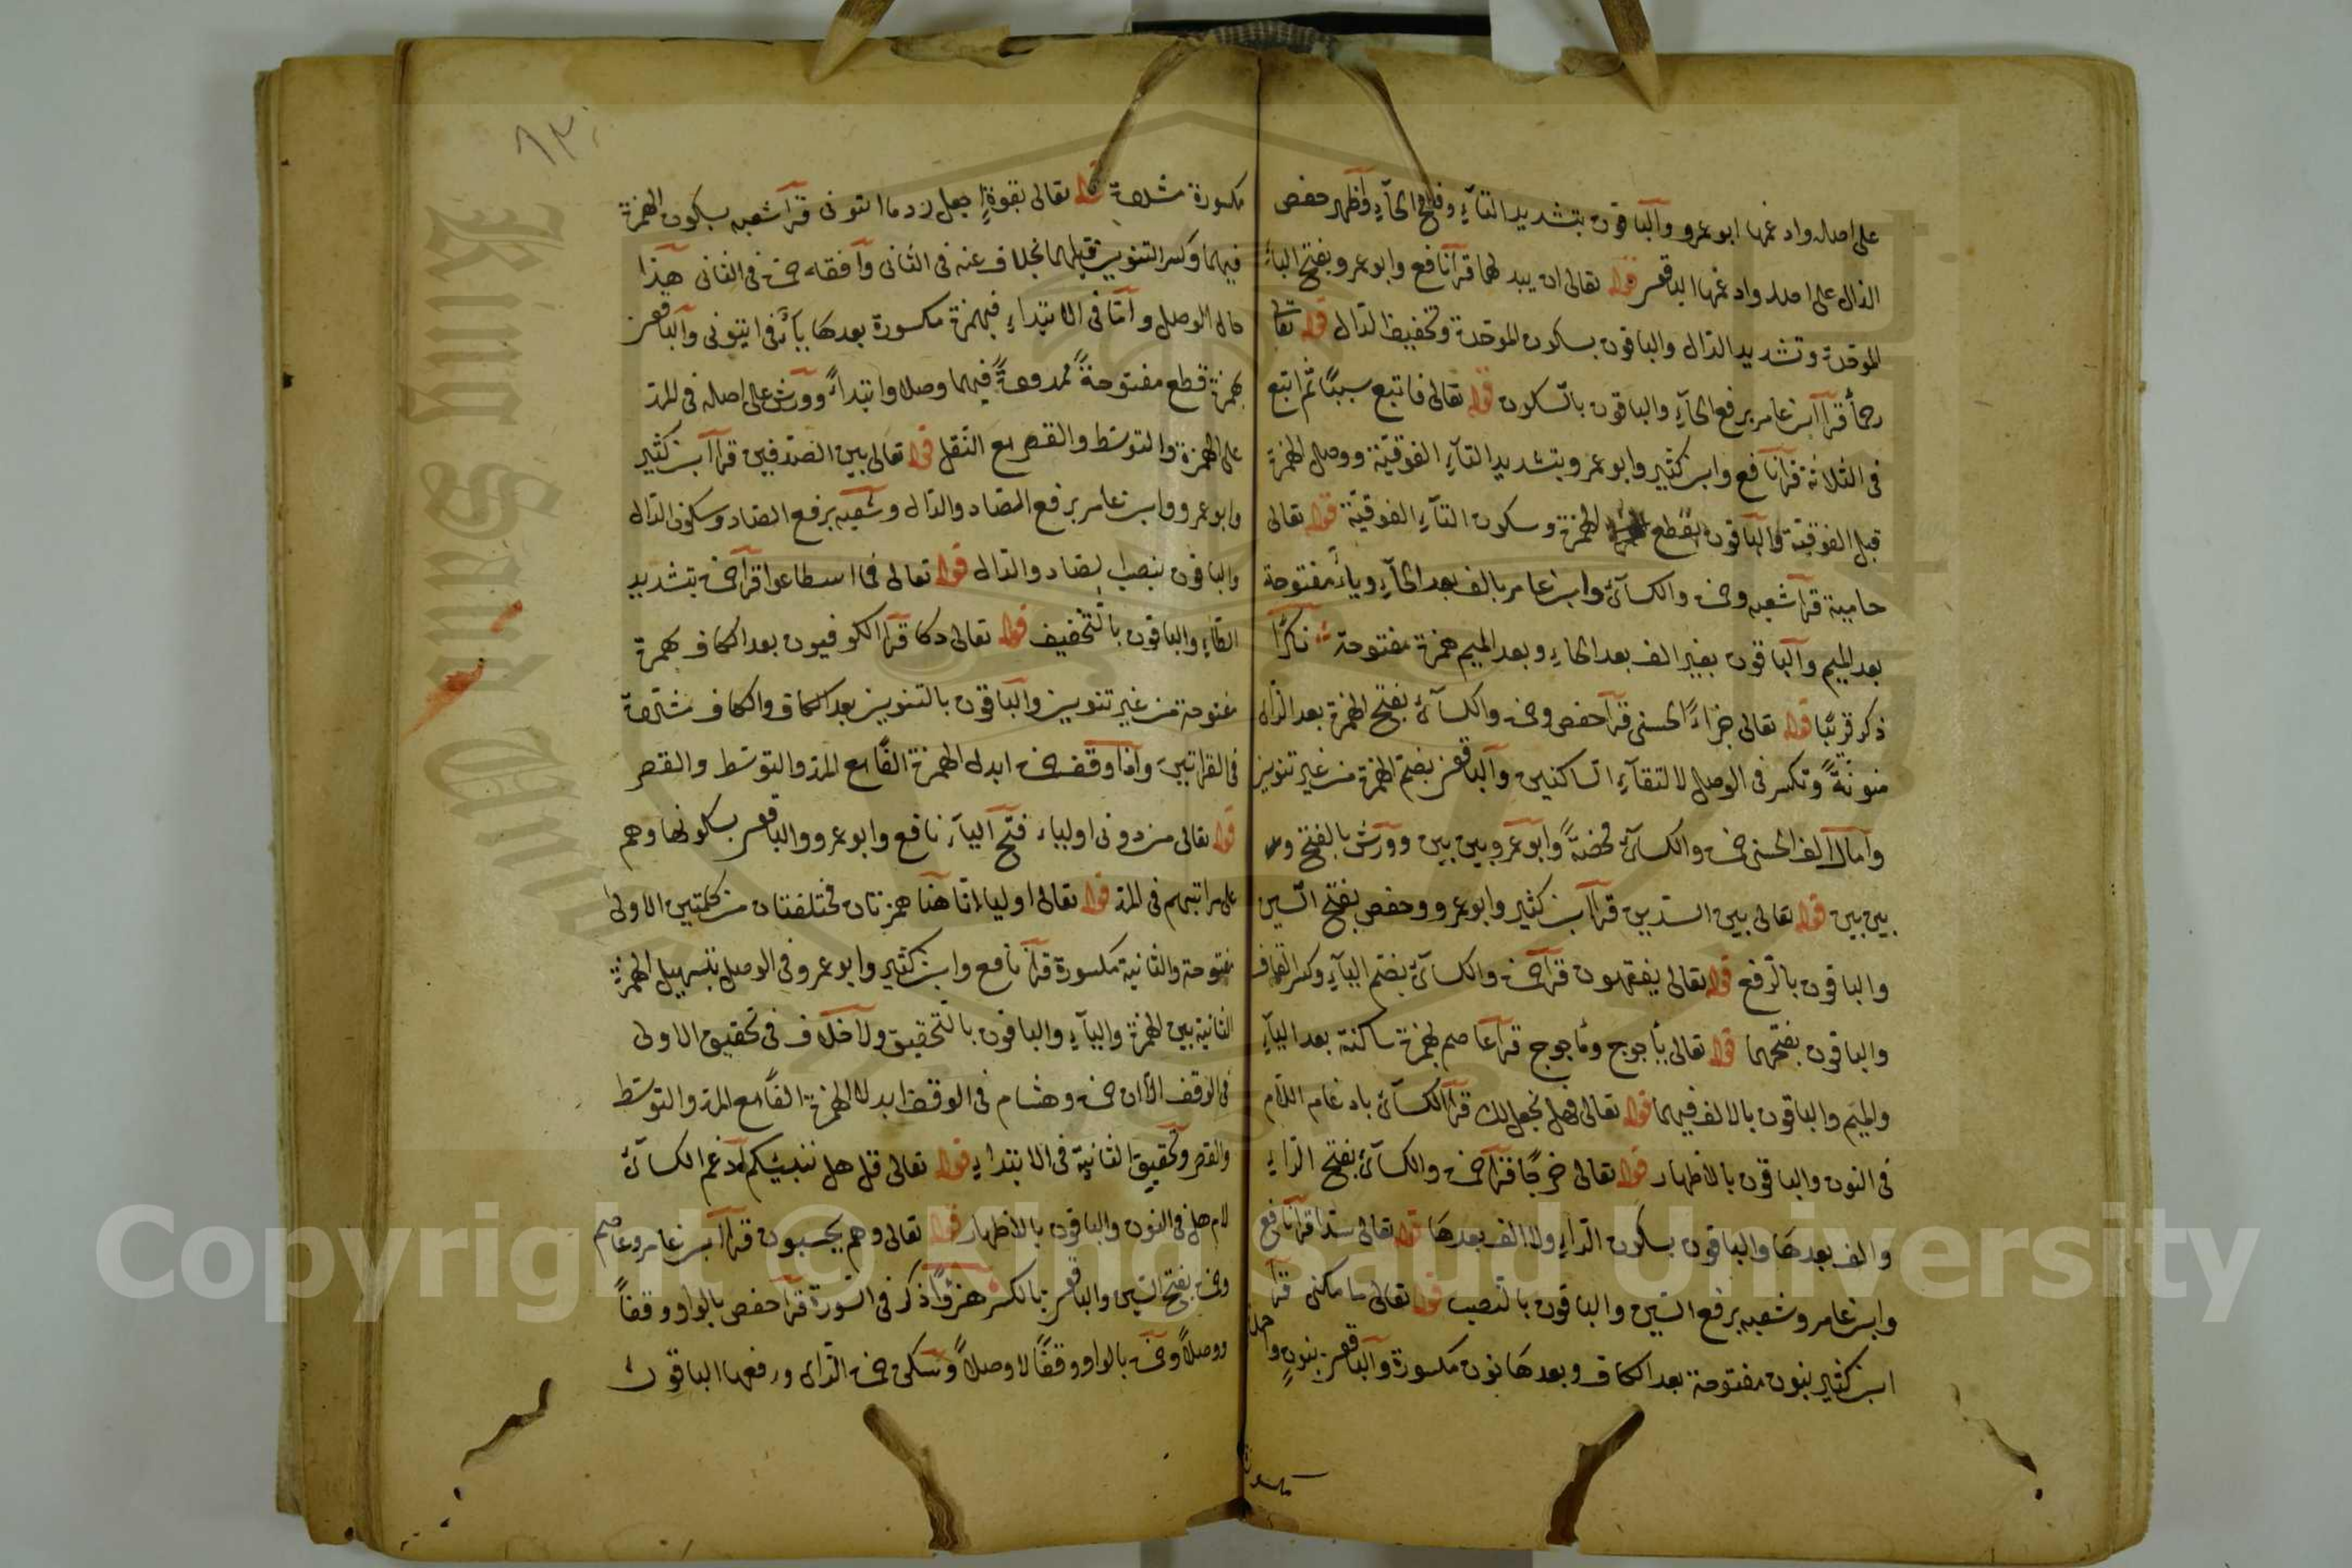 على اصله وادغمها ابو عمرو والباقون بتشديد التآء وفتح الخآء واظهر حفص
الذال على اصله وادغمها الباقون قوله تعالى ان يبدلهما قرأ نافع وابو عمرو بفتح البآء
الموحدة وتشديد الدال والباقون بسكون الموحدة وتخفيف الدال قوله تعالى
رحمًا قرأ ابن عامر برفع الحآء والباقون بالسكون قوله تعالى فاتبع سببًا ثم اتبع
فى الثلاثة قرأ نافع وابن كثير وابو عمرو بتشديد التآء الفوقية ووصل الهمزة
قبل الفوقية والباقون بقطع الهمزة وسكون التآء الفوقية قوله تعالى
حامية قرأ شعبه وحمزة والكسآئى وابن عامر بالف بعد الحآء ويآء مفتوحة
بعد الميم والباقون بغير الف بعد الحاء وبعد الميم همزة مفتوحة نكرًا
ذكر قريبًا قوله تعالى جزاءً الحسنى قرأ حفص وحمزة والكسآئى بفتح الهمزة بعد الزاى
منونةً وتكسر فى الوصل لالتقآء الساكنين والباقون بضم الهمزة من غير تنوين
وامال الف الحسنى حمزة والكسآئى محضةً وابو عمرو بين بين وورش بالفتح و
بين بين قوله تعالى بين السدين قرأ ابن كثير وابو عمرو وحفص بفتح السين
والباقون بالرفع قوله تعالى يفقهون قرأ حمزة والكسآئى بضم اليآء وكسر القاف
والباقون بفتحهما قوله تعالى يأجوج ومأجوج قرأ عاصم بهمزة ساكنة بعد اليآء
والميم والباقون بالالف فيهما قوله تعالى فهل نجعل لك قرأ الكسآئى بادغام اللام
فى النون والباقون بالاظهار قوله تعالى خرجًا قرأ حمزة والكسآئى بفتح الراء
والف بعدها والباقون بسكون الراء ولا الف بعدها قوله تعالى سدا قرأ نافع
وابن عامر وشعبه برفع السين والباقون بالنصب قوله تعالى ما مكنى قرأ
ابن كثير بنون مفتوحة بعد الكاف وبعدها نون مكسورة والباقون بنونٍ واحدة
مكسورة
١٣٠
مكسورة مشددة قوله تعالى بقوةٍ اجعل ردما اتونى قرأ شعبه بسكون الهمزة
فيهما وكسر التنوين قبلهما بخلاف عنه فى الثانى وافقه حمزة فى الثانى هذا
حال الوصل واما فى الابتداء فبهمزة مكسورة بعدها يآء فى ايتونى والباقون
بهمزة قطع مفتوحةً ممدودةً فيهما وصلا وابتداءً وورش على اصله فى المد
على الهمزة والتوسط والقصر مع النقل قوله تعالى بين الصدفين قرأ ابن كثير
وابو عمرو وابن عامر برفع الصاد والدال وشعبه برفع الصاد وسكون الدال
والباقون بنصب الصاد والدال قوله تعالى فما اسطاعوا قرأ حمزة بتشديد
الطآء والباقون بالتخفيف قوله تعالى دكا قرأ الكوفيون بعد الكاف بهمزة
مفتوحة من غير تنوين والباقون بالتنوين بعد الكاف والكاف مشددة
فى القرأتين واذا وقف حمزة ابدل الهمزة الفًا مع المد والتوسط والقصر
قوله تعالى من دونى اولياء فتح اليآء نافع وابو عمرو والباقون بسكونها وهم
على مراتبهم فى المد قوله تعالى اولياء انا هنا همزتان مختلفتان من كلمتين الاولى
مفتوحة والثانية مكسورة قرأ نافع وابن كثير وابو عمرو فى الوصل بتسهيل الهمزة
الثانية بين الهمزة واليآء والباقون بالتحقيق ولا خلاف فى تحقيق الاولى
فى الوقف الا ان حمزة وهشام فى الوقف ابدلا الهمزة الفًا مع المد والتوسط
والقصر وتحقيق الثانية فى الابتداء قوله تعالى قل هل ننبئكم ادغم الكسآئى
لام هل فى النون والباقون بالاظهار قوله تعالى وهم يحسبون قرأ ابن عامر وعاصم
وحمزة بفتح السين والباقون بالكسر هزوًا ذكر فى السورة قرأ حفص بالواو وقفاً
ووصلاً وحمزة بالواو وقفًا لا وصلاً وسكن حمزة الزاى ورفعها الباقون
King Saud University
Copyright © King Saud University